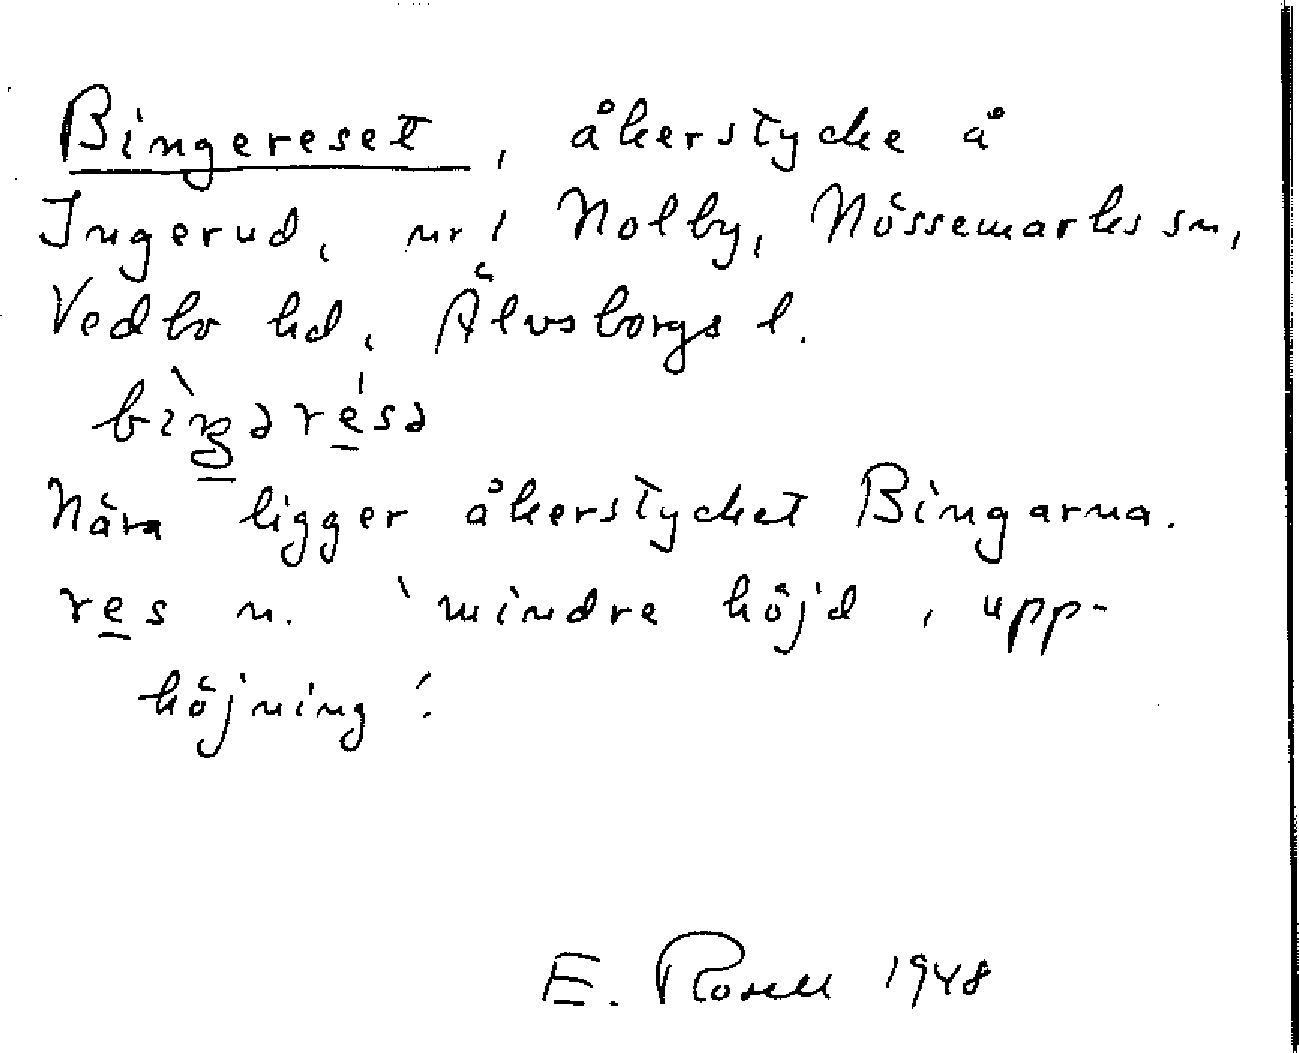 Bingereset, åkerstycke å
Ingerud, nr 1 Nolby, Nössemarks sn,
Vedbo hd, Älvsborgs l.
Nära ligger åkerstycket Bingarna.
res n. 'mindre höjd, upp-
höjning'.
E. Rosell 1948